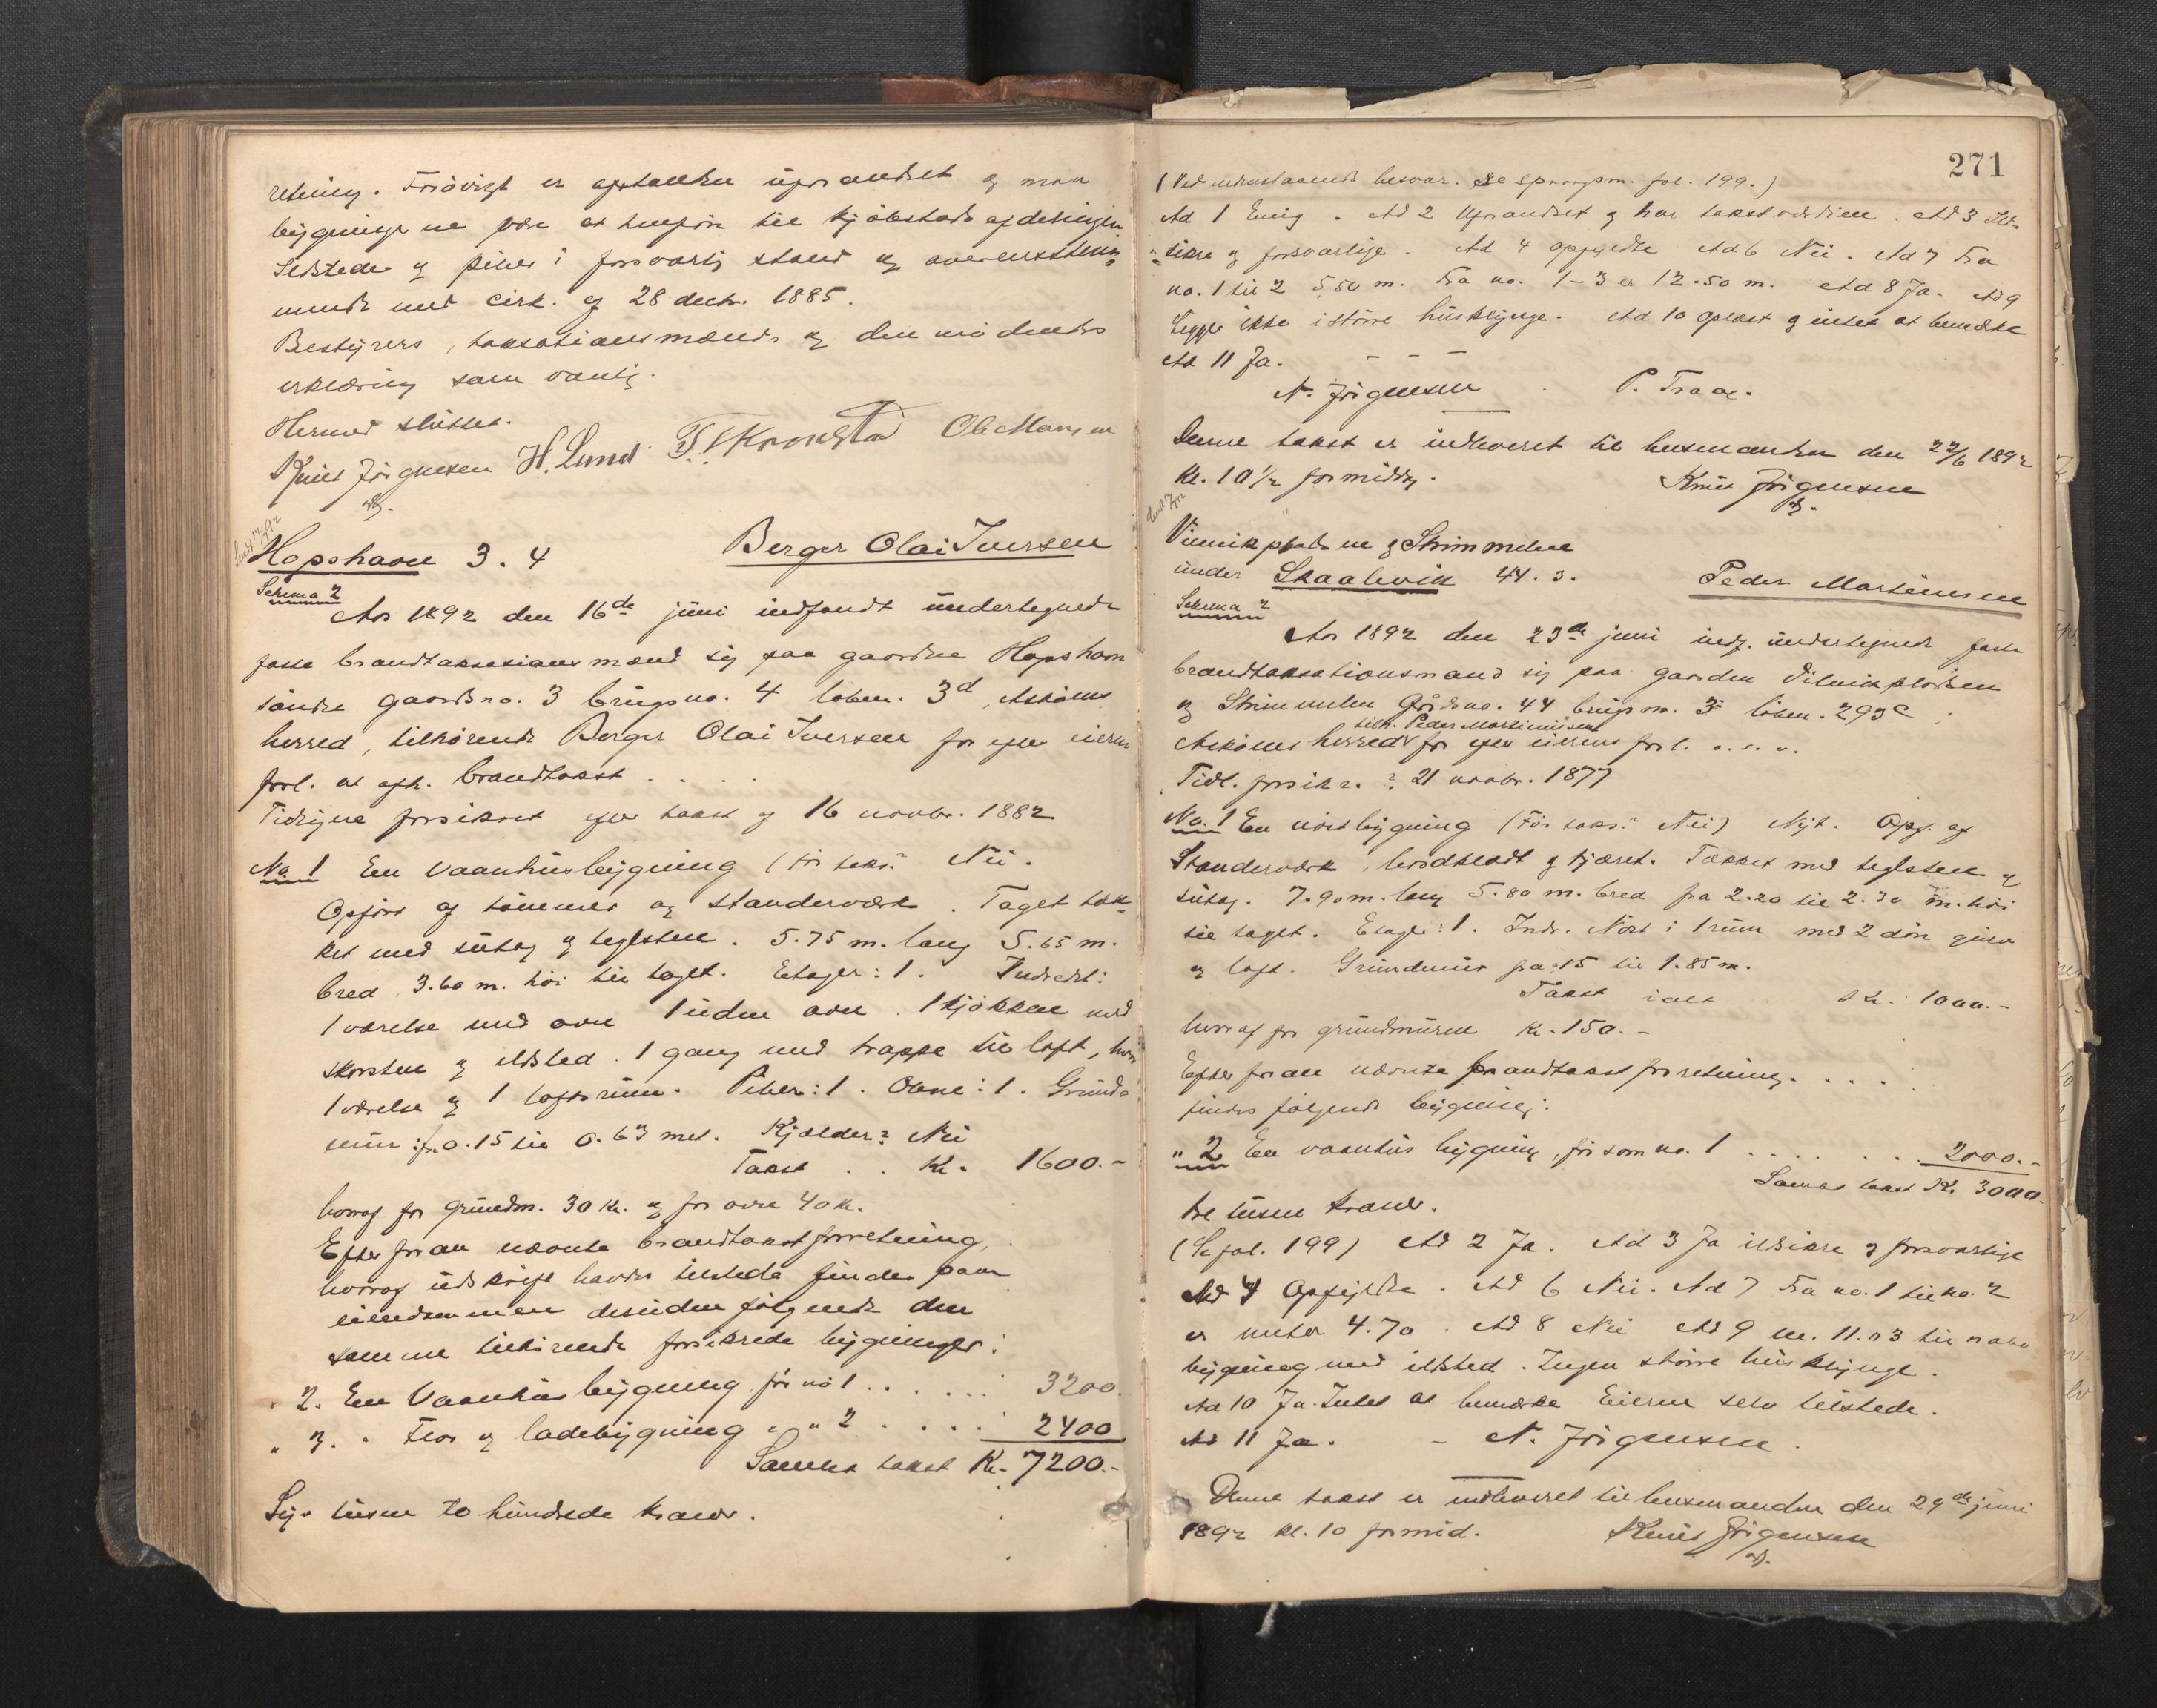 retning. Forövrigt er apstanden uforandret og maa
bygningerne være at henföre til kjöbstads afdelingen
Ildstede og piber i forsvarlig stand og overensstem-
mende med cirk. af 28 decbr. 1885.
Bestyrers, taksationsmænds og den mödendes
erklæring som vanlig.
Hermed sluttet.
Knut Jörgensen H. Lund Ole Monsen
Hopshavn 3. 4 Berger Olai Iversen
Schema 2
Aar 1892 den 16de juni indfandt undertegnede
faste brandtaksasionsmænd sig paa gaarden Hopshavn
söndre gaardsno. 3 brugsno. 4 löben. 3d, Asköens
herred, tilhörende Berger Olai Iversen for efter eierens
forl. at afh. brandtakst . . . .
Tidligere forsikret efter takst af 16 novbr. 1882
No. 1 En vaanhusbygning (för taks? Nei.
Opfört af tömmer og standerværk. Taget tæk-
ket med sutag og teglsten. 5.75 m. lang 5.65 m.
bred 3.60 m. höi til taget. Etager: 1. Indredet:
1 værelse med ovn 1 uden ovn. 1 kjökken med
skorsten og ildsted. 1 gang med trappe til loft, hvor
1 værelse og 1 loftsrum. Piber: 1. Ovne: 1. Grund-
mur: fr. 0.15 til 0.63 met. Kjelder? Nei
Takst . . Kr. 1600.-
hvoraf for grundm. 30 Kr. og for ovn 40 Kr.
Efter foran nævnte brandtakstforretning,
hvoraf udskrift havdes tilstede findes paa
eiendommen desuden fölgende den
samme tilhörende forsikrede bygninger:
" 2. En Vaanhusbygning för no 1 . . . . . . 3200.
" 3. " Flor og ladebygning " " 2 . . . . 2400
Samlet takst Kr. 7200.-
Syv tusen to hundrede kroner.
271
(Ved nedenstaaende besvar. se spørgsm. fol. 199.)
Ad 1 Enig. Ad 2 Uforandret og har takstværdien. Ad 3 Ild-
sikre og forsvarlige. Ad 4 opfyldte Ad 6 Nei. Ad 7 Fra
no. 1 til 2 5.50 m. Fra no. 1-3 er 12.50 m. Ad 8 Ja. Ad 9
Ligger ikke i större husklynge. Ad 10 oplæst og intet at bemerke
Ad 11 Ja. - - -
N. Jörgensen P. Traae.
Denne takst er indleveret til lensmanden den 22/6 1892
Kl. 10 1/2 formiddg. Knut Jörgensen
og Strimmelen
under Skaalevik 44. 3. Peder Martinussen
Schema 2
Aar 1892 den 23de juni indf. undertegnede faste
brandtaksationsmænd sig paa gaarden
og Strimmelen Gårdsno. 44 brugsno. 3 löben. 293c,
tilh. Peder Martinussen
Asköens herred for efter eierens forl. o.s.v.
Tidl. forsikr.? 21 novbr. 1877
No. 1 En nöstbygning (För taks? Nei) Nyt. Opf. af
Standerværk, bordklædt og tjæret. Tækket med teglsten og
sutag. 7.90 m. lang 5.80 m. bred fra 2.20 til 2.30 m. höi
til taget. Etager: 1. Indr. Nöst i 1 rum med 2 dör
og loft. Grundmur fra 15 til 1.85 m.
Takst ialt Kr. 1000.-
hvoraf for grundmuren Kr. 150.-
Efter foran nævnte brandtakstforretning. . . .
findes fölgende bygning:
" 2 En vaanhusbygning, för som no. 1 . . . . . . . 2000.-
Samlet takst Kr. 3000.
tre tusen kroner.
(Se fol. 199) Ad 2 Ja. Ad 3 Ja ildsikre og forsvarlige
Ad 4 Opfyldte. Ad 6 Nei. Ad 7 Fra no. 1 til no. 2
er meter 4.70. Ad 8 Nei Ad 9 m. 11.03 til nabo
bygning med ildsted. Ingen större husklynge.
Ad 10 Ja. Intet at bemærke Eieren selv tilstede.
Ad 11 Ja. - N. Jörgensen.
Denne takst er indleveret til lensmanden den 29de juni
1892 kl. 10 formid. Knut Jörgensen